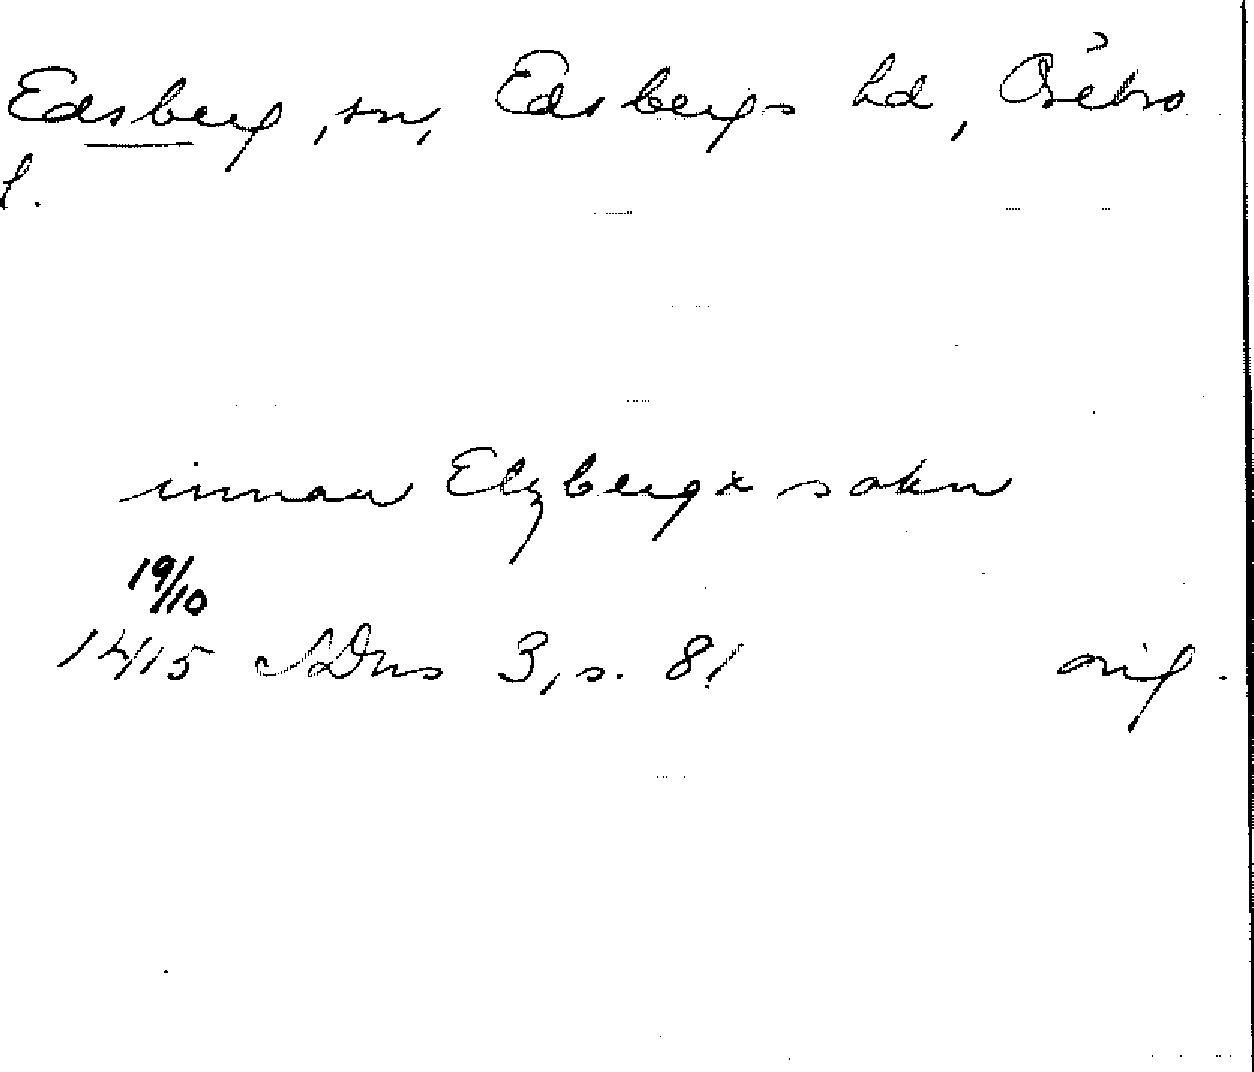 Edsberg, sn, Edsbergs hd, Örebro
l.
innan Elzbergx sokn
19/10
1415 SDns 3, s. 81 orig.